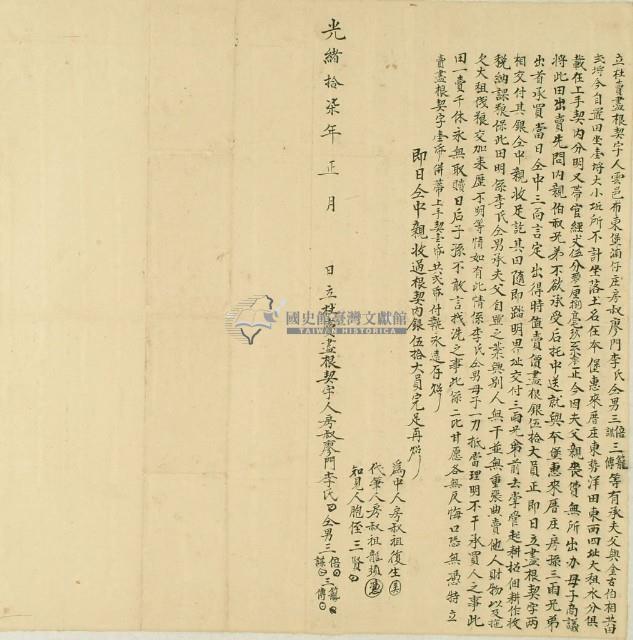 立杜賣盡根契字人雲邑布東堡湳仔庄房叔廖門李氏仝男三倍三籠三謀三傳等有承夫父與金古伯相共田
坵埒今自置田坐壹埒大小坵所不計坐落土名在本堡惠來厝庄東勢洋田東西四址大租水分俱
載在上手契內分明又帶官經丈伍分正今因夫父親喪費無所出办母子商議
將此田出賣先問內親伯叔兄弟不欲承受后托中送就與本堡惠來厝庄房孫三雨兄弟
出首承買當日仝中三面言定出得時值賣價盡根銀伍拾大員正即日立盡根契字兩
相交付其銀仝中親收足訖其田隨即踏明界址交付三雨兄弟前去掌管起耕招佃耕作收
稅納課務保此田明係李氏仝男承夫父自置之業與別人無干並無重張典賣他人財物以及拖
欠大租伐粮交加來歷不明等情如有此情係李氏仝男母子一力抵當理明不干承買人之事此
田一賣千休永無取贖日后子孫不敢言找洗之事此係二比甘愿各無反悔口恐無憑特立
賣盡根契字壹帋併帶上手契壹帋共弍帋付執永遠存炤
即日仝中親收過根契內銀伍拾大員完足再炤
為中人房叔祖復生
代筆人房叔祖
知見人胞侄三賢
光緒拾柒年正月 日立杜賣盡根契字人房叔廖門李氏仝男三倍三籠三謀三傳
國史館臺灣文獻館
TAIWAN HISTORICA